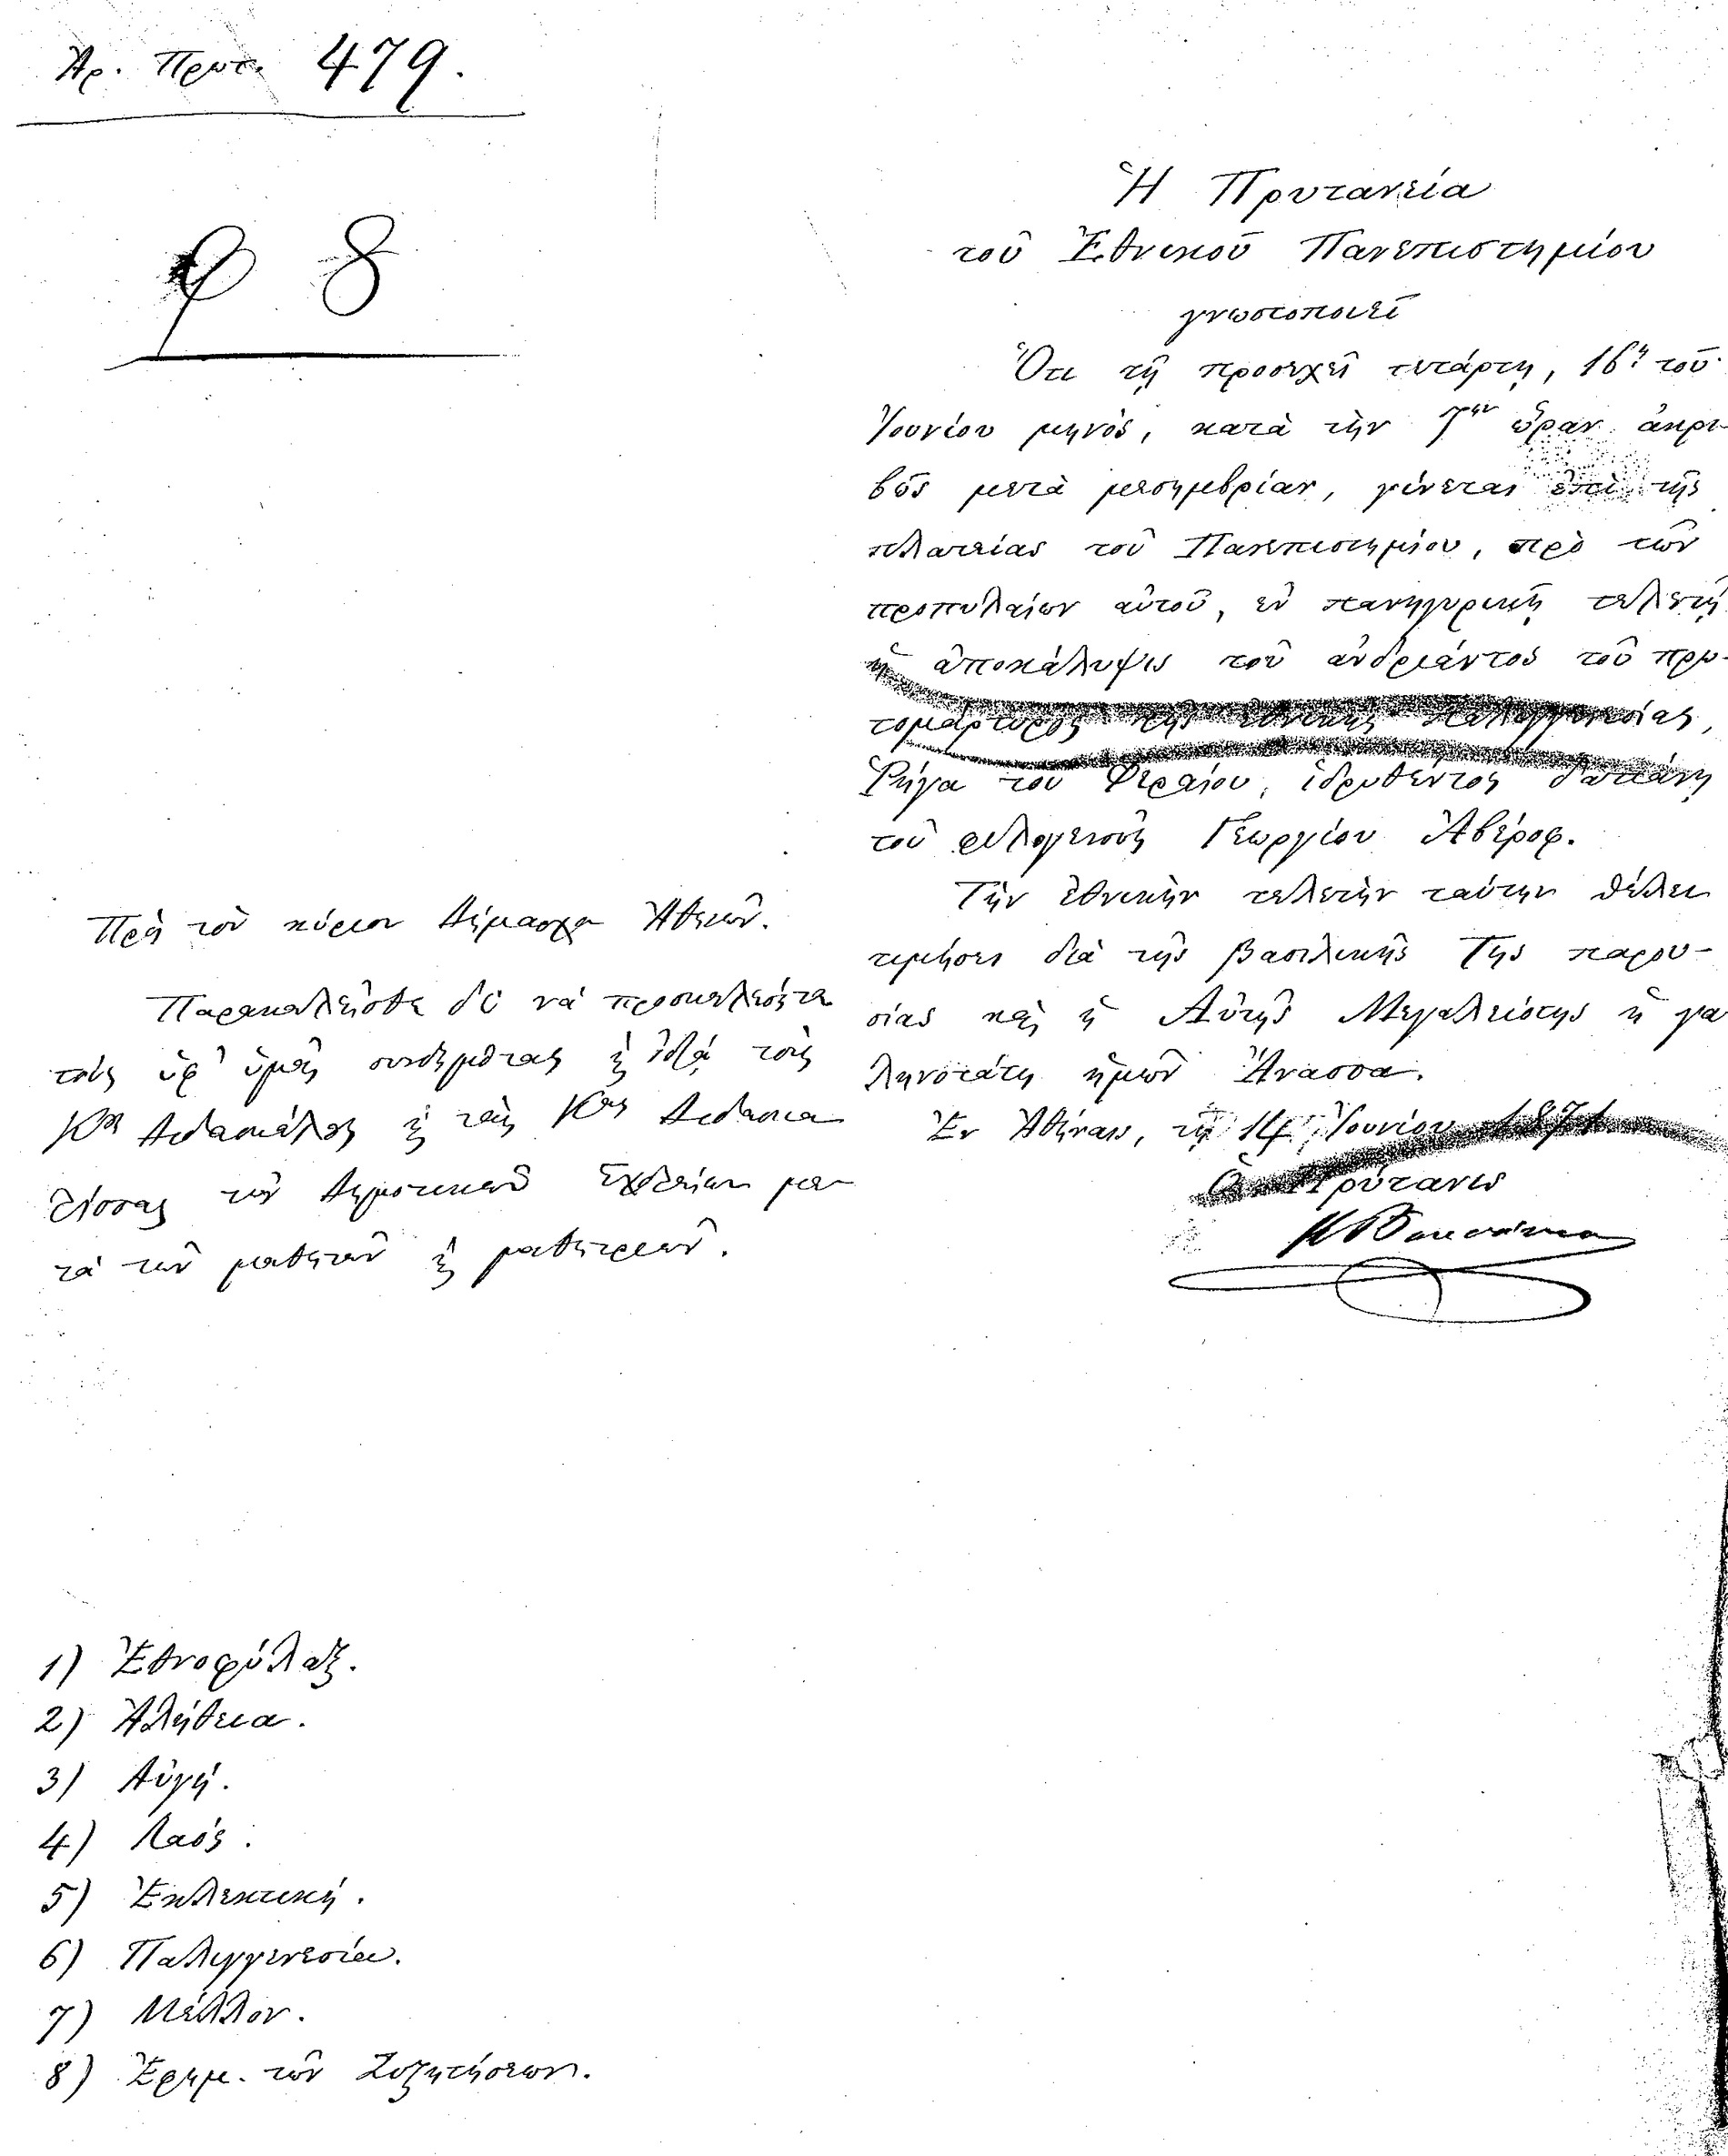 Ἀρ. Πρωτ. 479.
φ 8
Ἡ Πρυτανεία
τοῦ Ἐθνικοῦ Πανεπιστημίου
γνωστοποιεῖ
Ὅτι τῇ προσεχεῖ τετάρτῃ, 16ῃ τοῦ
Ἰουνίου μηνὸς, κατὰ τὴν 7ην ὥραν ἀκρι-
βῶς μετὰ μεσημβρίαν, γίνεται ἐπὶ τῆς
πλατείας τοῦ Πανεπιστημίου, πρὸ τῶν
προπυλαίων αὐτοῦ, ἐν πανηγυρικῇ τελετῇ
ἡ ἀποκάλυψις τοῦ ἀνδριάντος τοῦ πρω-
τομάρτυρος τῆς ἐθνικῆς παλιγγενεσίας,
Ῥήγα τοῦ Φεραίου, ἱδρυθέντος δαπάνῃ
τοῦ φιλογενοῦς Γεωργίου Ἀβέρωφ.
Τὴν ἐθνικὴν τελετὴν ταύτην θέλει
τιμήσει διὰ τῆς βασιλικῆς Της παρου-
σίας καὶ ἡ Αὐτῆς Μεγαλειότης ἡ γα
ληνοτάτη ἡμῶν Ἄνασσα.
Ἐν Ἀθήναις, τῇ 14 Ἰουνίου 1871.
Ὁ Πρύτανις
Πρὸς τὸν κύριον Δήμαρχον Ἀθηνῶν.
Παρακαλεῖσθε δὲ νὰ προσκαλέσητε
τοὺς ὑφ' ὑμᾶς συνδημότας καὶ ἰδίᾳ τοὺς
Κους Διδασκάλους καὶ τὰς Κας Διδασκα
λίσσας τῶν Δημοτικῶν Σχολείων με
τὰ τῶν μαθητῶν καὶ μαθητριῶν.
1) Ἐθνοφύλαξ.
2) Ἀλήθεια.
3) Αὐγή.
4) Λαός.
5) Ἐκλεκτική.
6) Παλιγγενεσία.
7) Μέλλον.
8) Ἐφημ. τῶν Συζητήσεων.